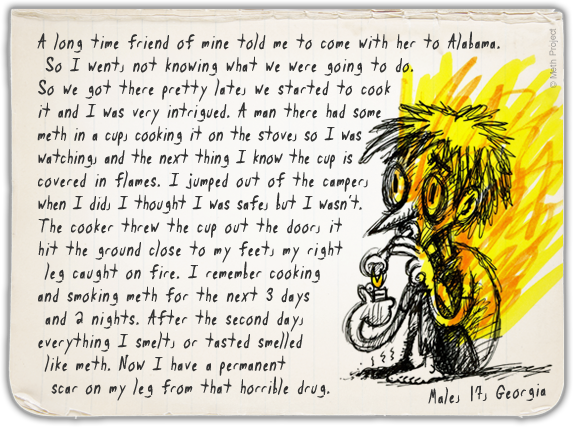 A long time friend of mine told me to come with her to Alabama.
So I went, not knowing what we were going to do.
So we got there pretty late, we started to cook
it and I was very intrigued. A man there had some
meth in a cup, cooking it on the stove, so I was
watching, and the next thing I know the cup is
covered in flames. I jumped out of the camper,
when I did, I thought I was safe, but I wasn't.
The cooker threw the cup out the door, it
hit the ground close to my feet, my right
leg caught on fire. I remember cooking
and smoking meth for the next 3 days
and 2 nights. After the second day,
everything I smelt, or tasted smelled
like meth. Now I have a permanent
scar on my leg from that horrible drug.
Male, 17, Georgia
© Meth Project